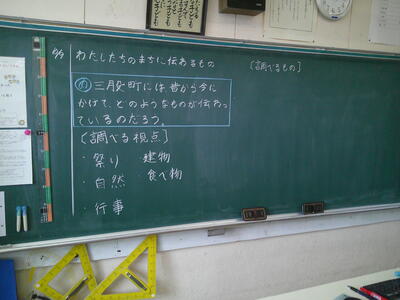 9/9 わたしたちのまちに伝わるもの
め 三股町には昔から今に
かけて、どのようなものが伝わっ
ているのだろう。
[調べる視点]
・祭り 建物
・自然 食べ物
・行事
[調べるもの]